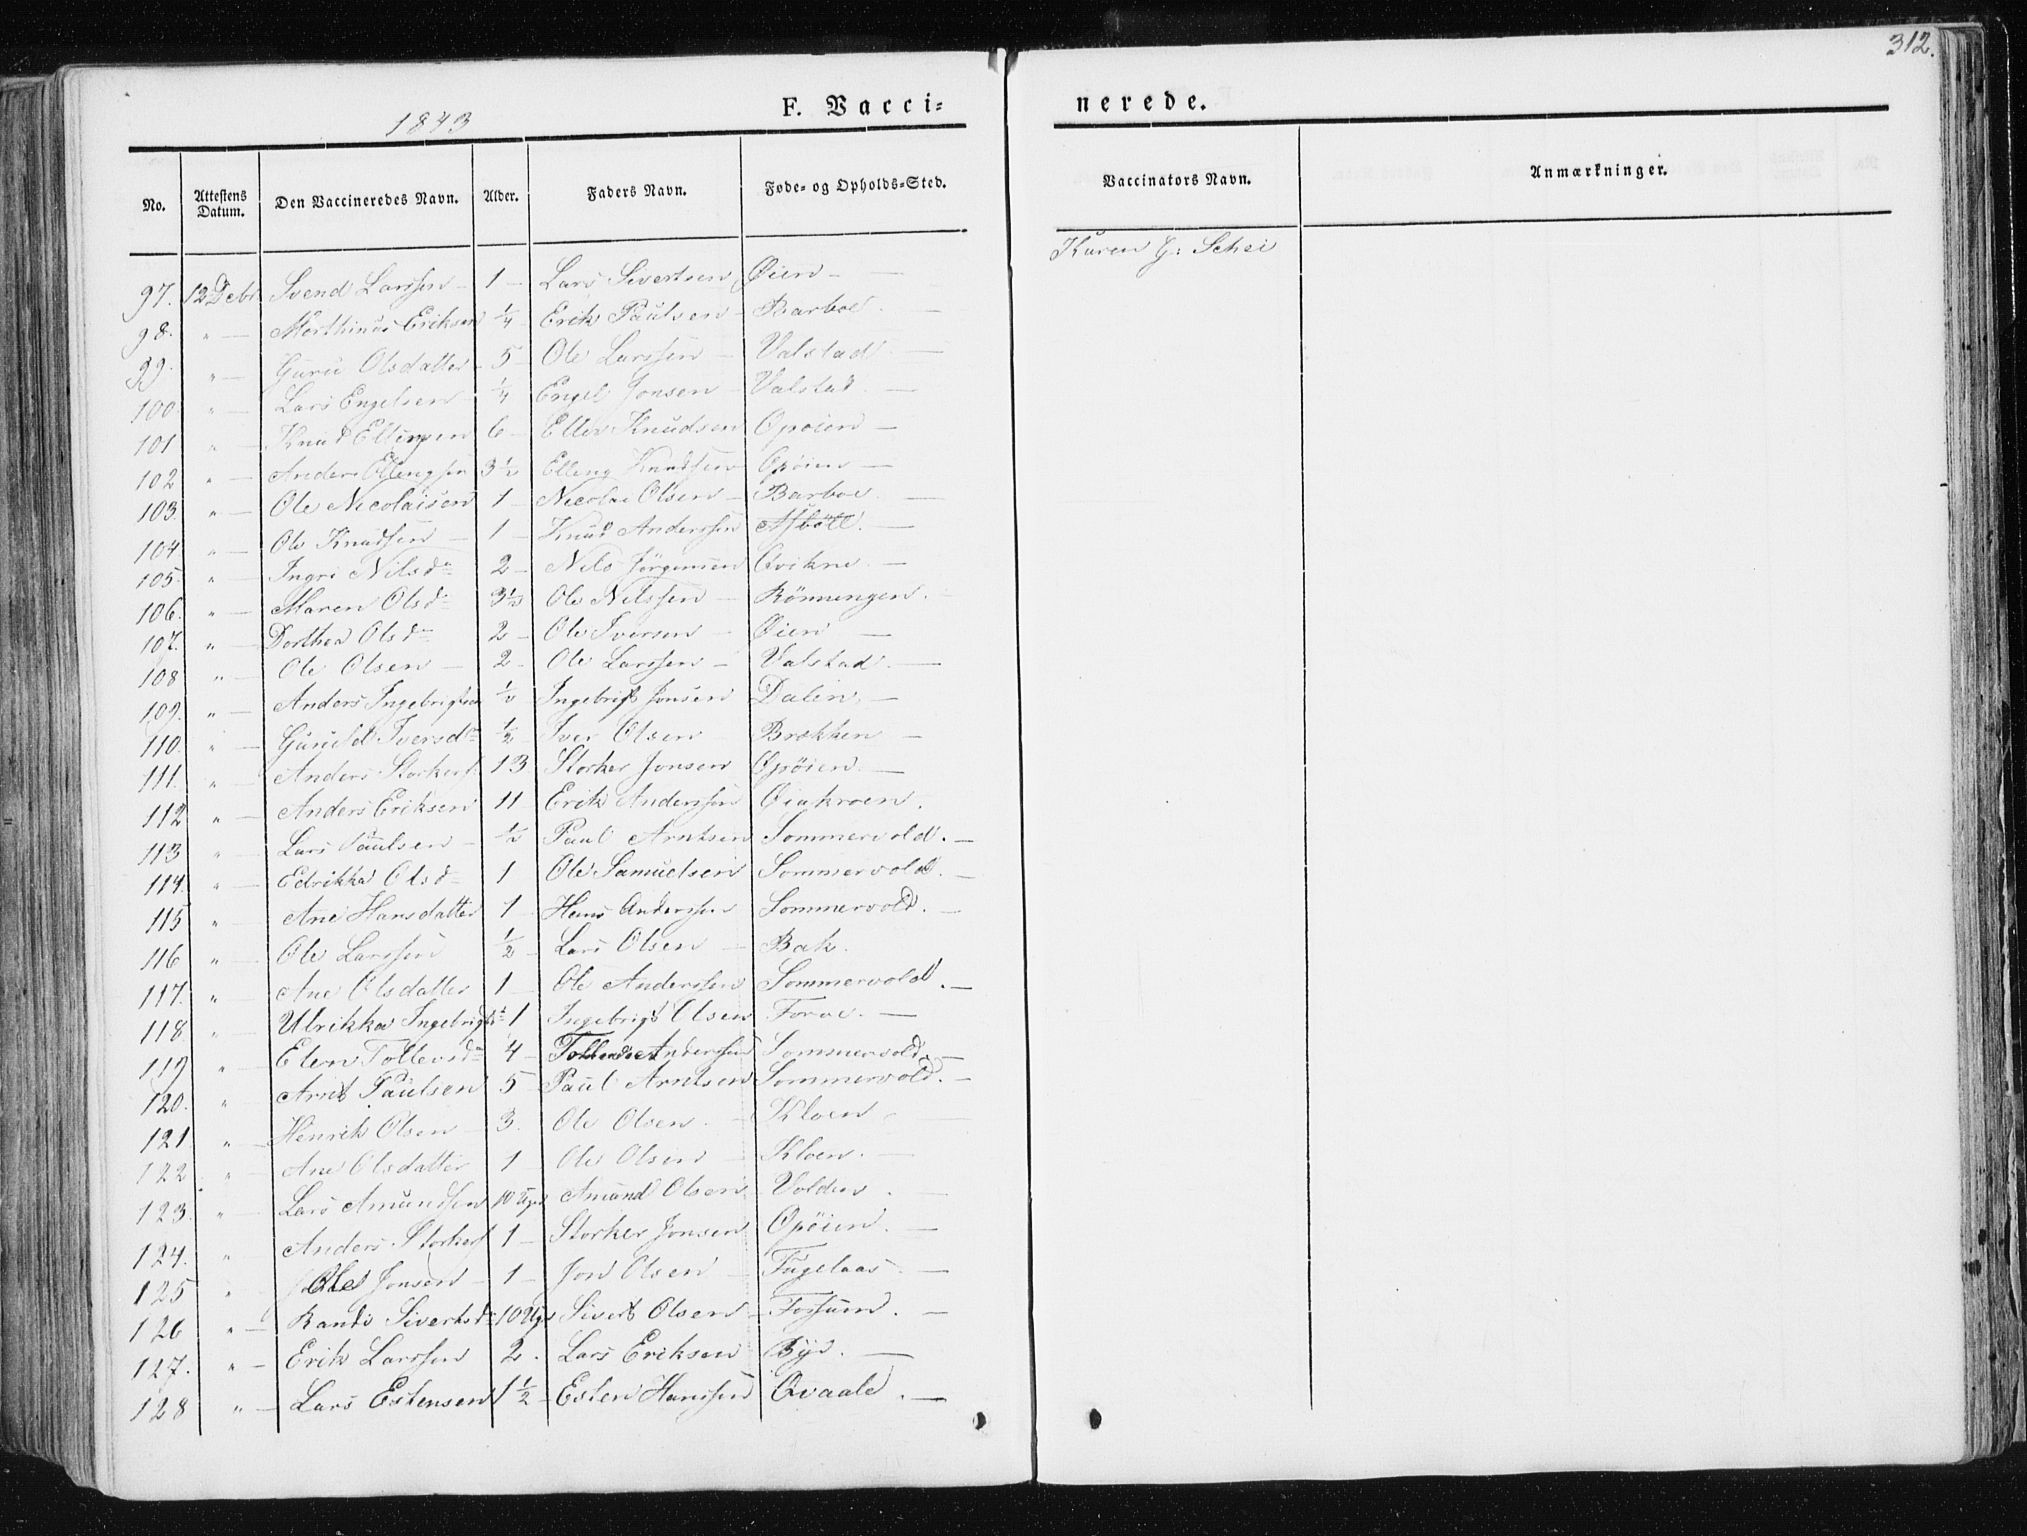 312.
1843
F. Vacci-
nerede.
No. Attestens Datum. Den Vaccineredes Navn. Alder. Faders Navn. Føde- og Opholds-Sted. Vaccinators Navn. Anmærkninger.
97. 12 Debr Svend Larssen - 1 - Lars Sivertsen Øien - Karen G: Schei
98. " - Morthinus Eriksen ¼ - Erik Paulsen - Barboe -
99. " - Guru Olsdatter - 5 Ole Larssen - Valstad -
100 " - Lars Engelsen - ¼ Engel Jonsen - Valstad -
101 " - Knud Ellingsen 6 - Knudsen Opøien -
102 " - Anders Ellengsen 3½ Elleng Knudsen Opøien -
103. " - Ole Nicolaisen 1 - Nicolai Olsen - Barboe. -
104 " - Ole Knudsen - 1 - Knud Anderssen -
105. " - Ingri Nilsdr 2 - Nils Jörgensen Qvikne. -
106. " - Maren Olsdr 3½ Ole Nilssen - Rönningen.
107. " - Dorthea Olsdr 2 - Ole Iversen - Øien -
108 " - Ole Olsen - 2 - Ole Larssen - Valstad. -
109. " - Anders Ingebrigtsen ½ Ingebrigt Jonsen Dalen. -
110. " - Gunild Iversdr ½ Iver Olsen Brækken -
111. " - Anders Storkers. 13 Storker Jonsen Opøien. -
112 " - Anders Eriksen 11 Erik Anderssen Øiakroen.
113 " - Lars Paulsen - ½ Paul Arntsen Sommervold. -
114. " - Edrikka Olsd - 1 Ole Samuelsen Sommervold. -
115 " - Ane Hansdatter 1 - Hans Anderssen Sommervold. -
116 " - Ole Larssen ½ - Lars Olsen - Bak.
117. " - Ane Olsdatter 1 - Ole Anderssen Sommervold. -
118. " - Ulrikka Ingebrigts 1 Ingebrigt Olsen Forve. -
119 " - Elen Tollevsdr 4 - Anderssen Sommervold. -
120. " - Arnt Paulsen 5 Paul Arntsen Sommervold. -
121 " - Henrik Olsen - 3. Ole Olsen. - Kloen -
122 " - Ane Olsdatter 1 - Ole Olsen - Kloen. -
123. " - Lars Amundsen 10 Uger Amund Olsen Volden. -
124. " Anders Storkers 1 - Storker Jonsen Opöien. -
125 " Ole Jonsen - 1 - Jon Olsen - Fugelaas. -
126 " - Randi Sivertsdr 10 Ugr Sivert Olsen - Forsum. -
127. " - Erik Larssen 2. Lars Eriksen Bye. -
128 " - Lars Estensen 1½ - Esten Hanssen Qvaale. -